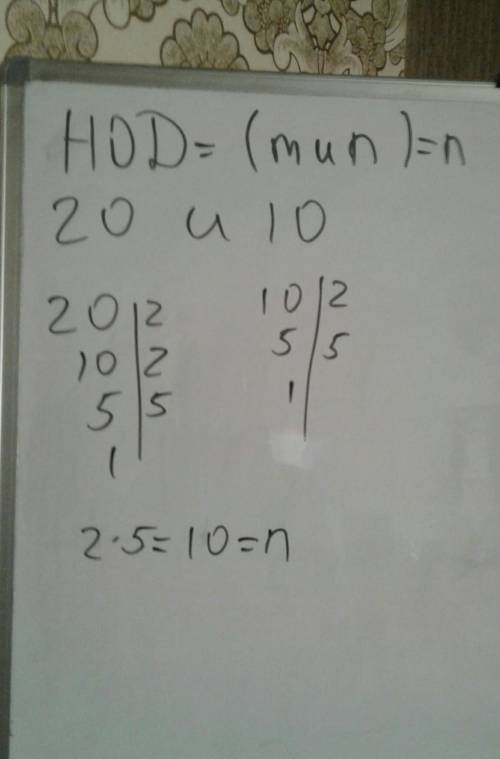 НОД = (m и n) = n
20 и 10
20 | 2 10 | 2
10 | 2 5 | 5
5 | 5 1 |
1 |
2·5=10=n